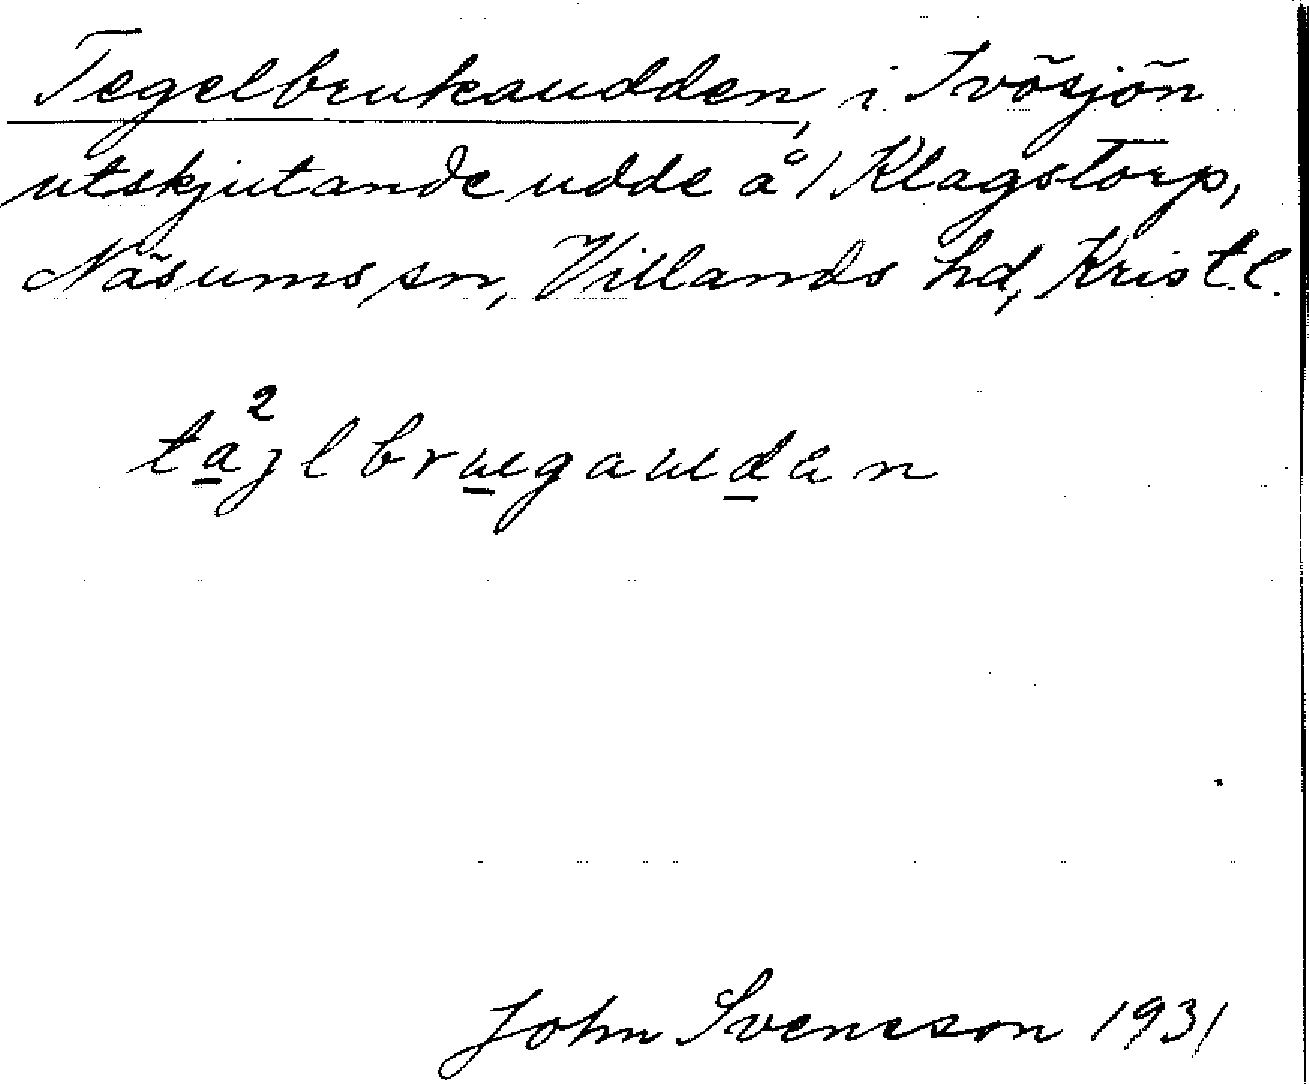 Tegelbrukaudden, i Ivösjön
utskjutande udde å 1 Klagstorp,
Näsums sn, Villands hd, Krist. l.
ta²jlbrugaudån
John Svensson 1931